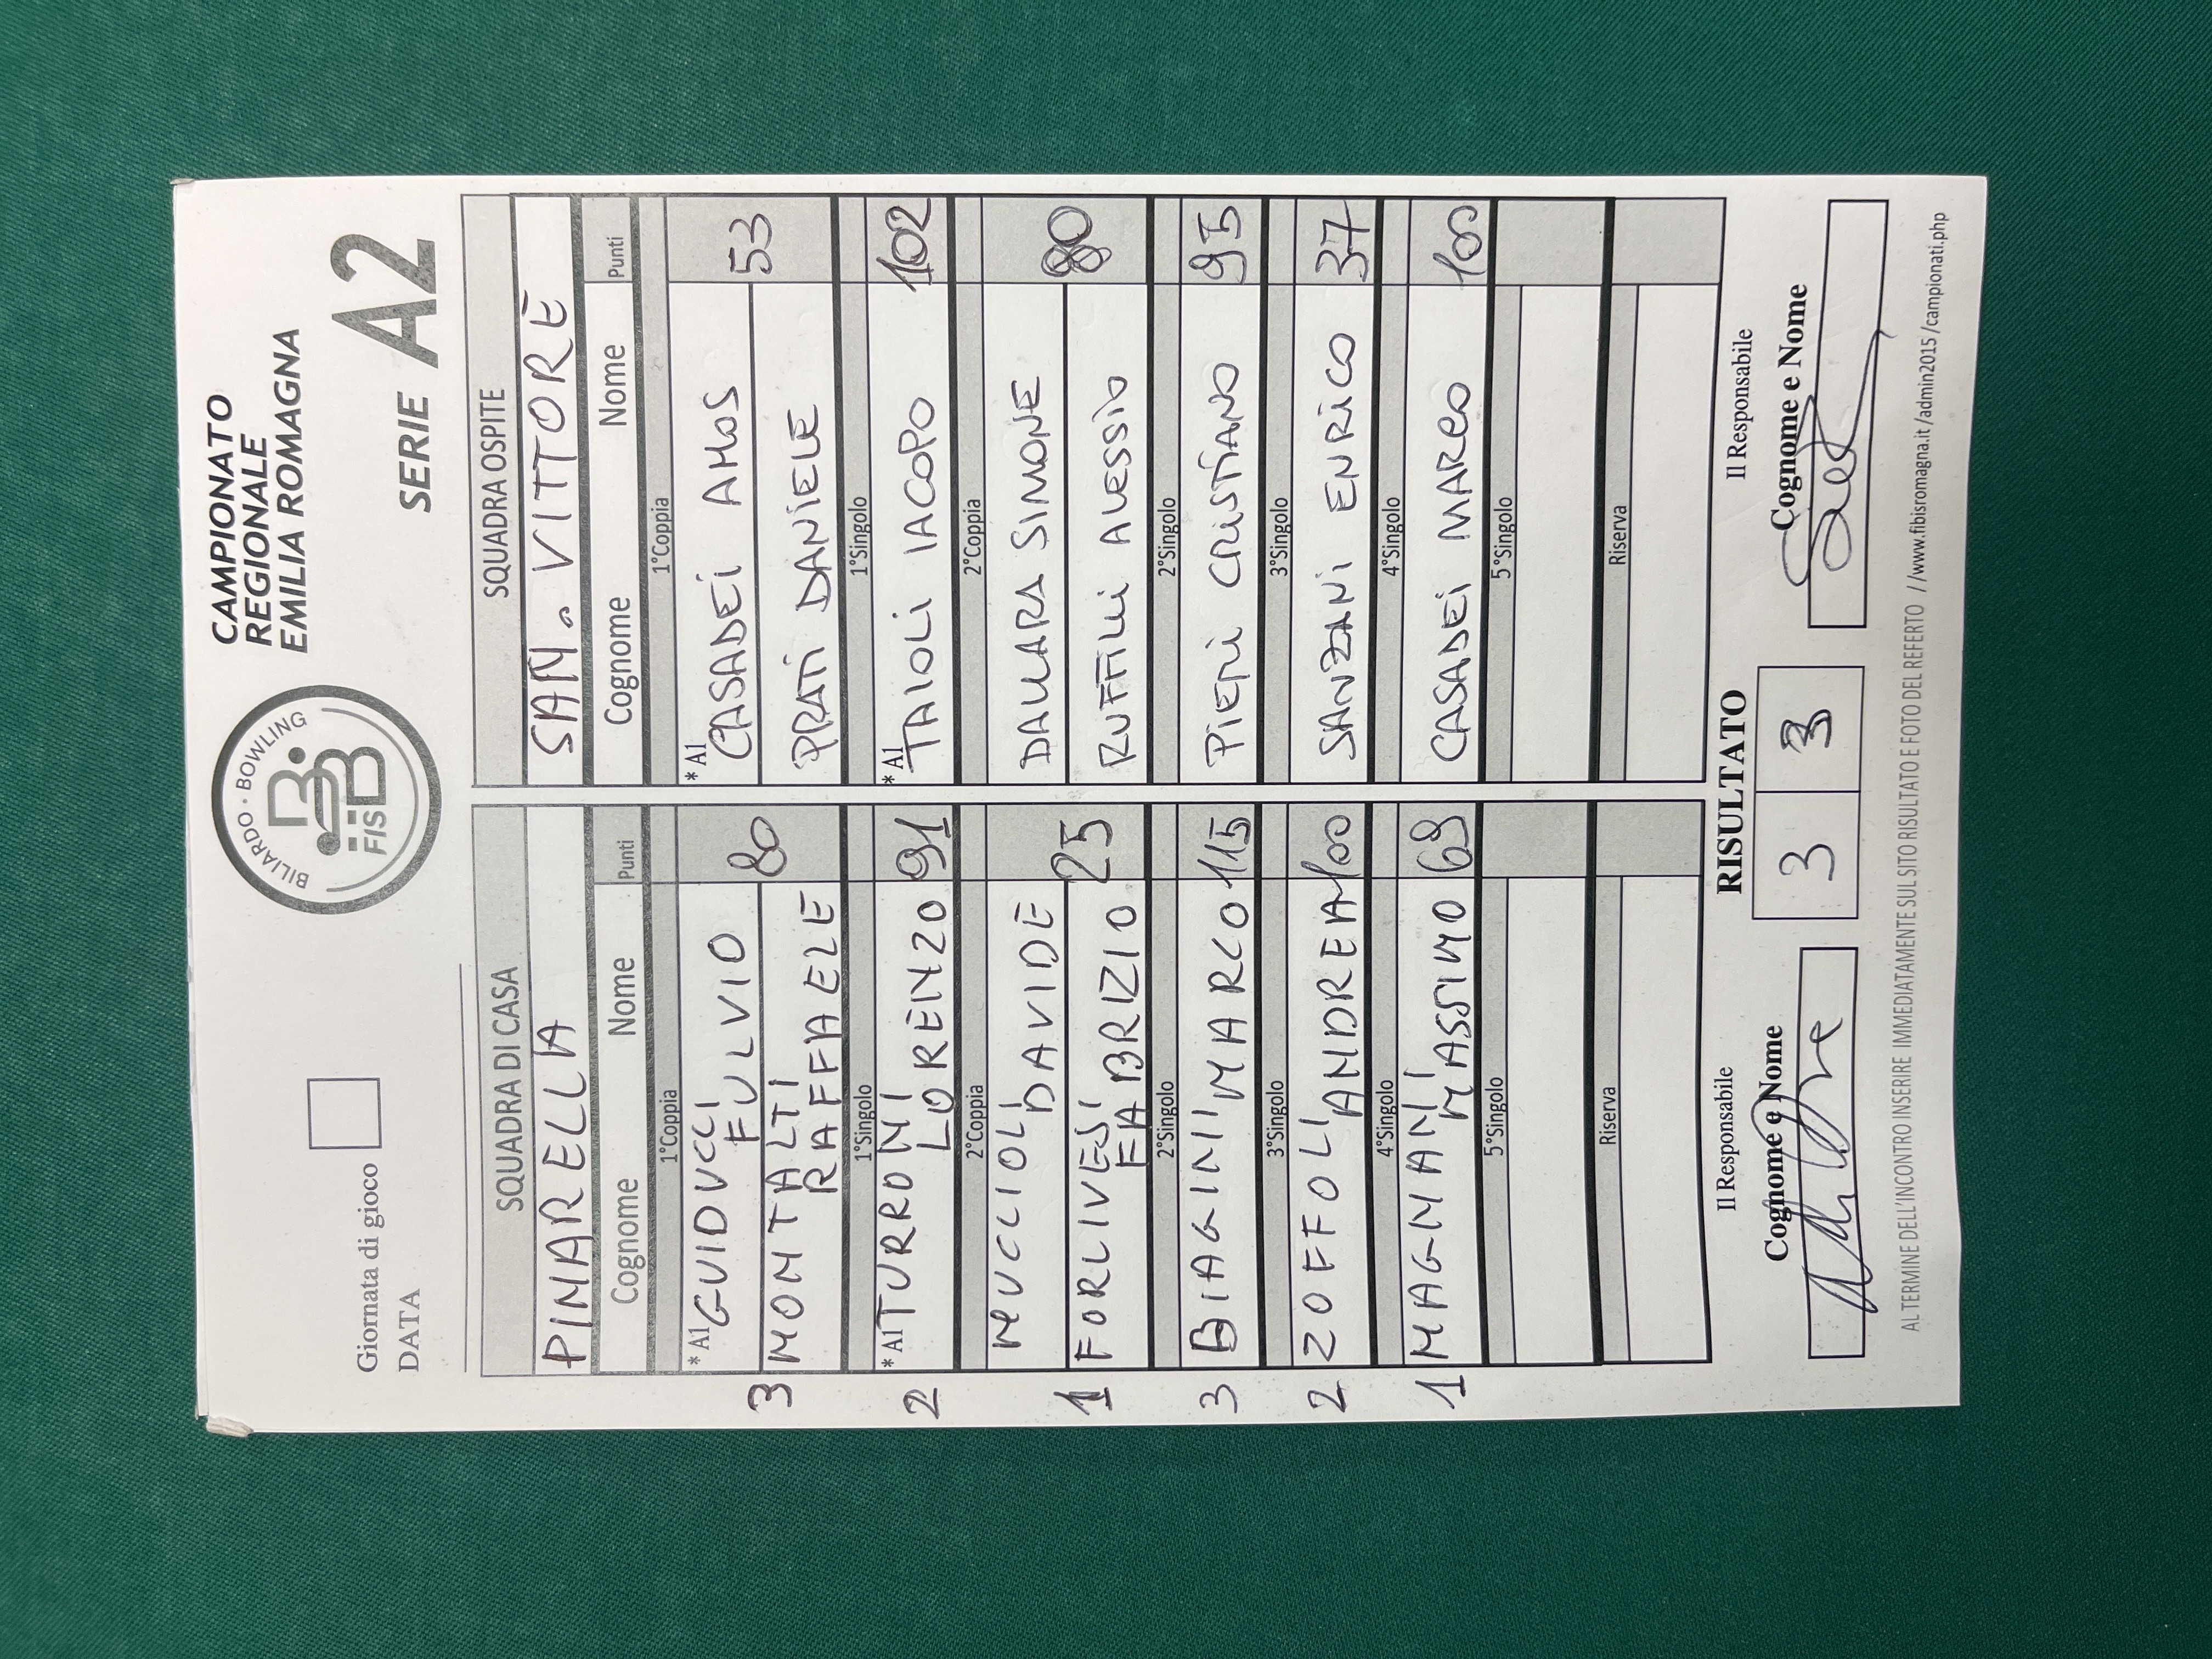 Giornata di gioco
DATA
BILIARDO · BOWLING
FISBB
CAMPIONATO
REGIONALE
EMILIA ROMAGNA
SERIE A2
SQUADRA DI CASA
PINARELLA
Cognome Nome Punti
1°Coppia
*A1 GUIDUCCI FULVIO
3 MONTALTI RAFFAELE 80
1°Singolo
2 *A1 TURRONI LORENZO 91
2°Coppia
MUCCIOLI DAVIDE
1 FORLIVESI FABRIZIO 25
2°Singolo
3 BIAGINI MARCO 115
3°Singolo
2 ZOFFOLI ANDREA 100
4°Singolo
1 MAGNANI MASSIMO 69
5°Singolo
Riserva
SQUADRA OSPITE
SAN. VITTORE
Cognome Nome Punti
1°Coppia
*A1 CASADEI AMOS 53
PRATI DANIELE
1°Singolo
*A1 TAIOLI IACOPO 102
2°Coppia
DALLARA SIMONE 80
RUFFILLI ALESSIO
2°Singolo
PIERI CRISTIANO 95
3°Singolo
SANZANI ENRICO 37
4°Singolo
CASADEI MARCO 100
5°Singolo
Riserva
Il Responsabile
Cognome e Nome
RISULTATO
3 3
Il Responsabile
Cognome e Nome
AL TERMINE DELL'INCONTRO INSERIRE IMMEDIATAMENTE SUL SITO RISULTATO E FOTO DEL REFERTO //www.fibisromagna.it/admin2015/campionati.php